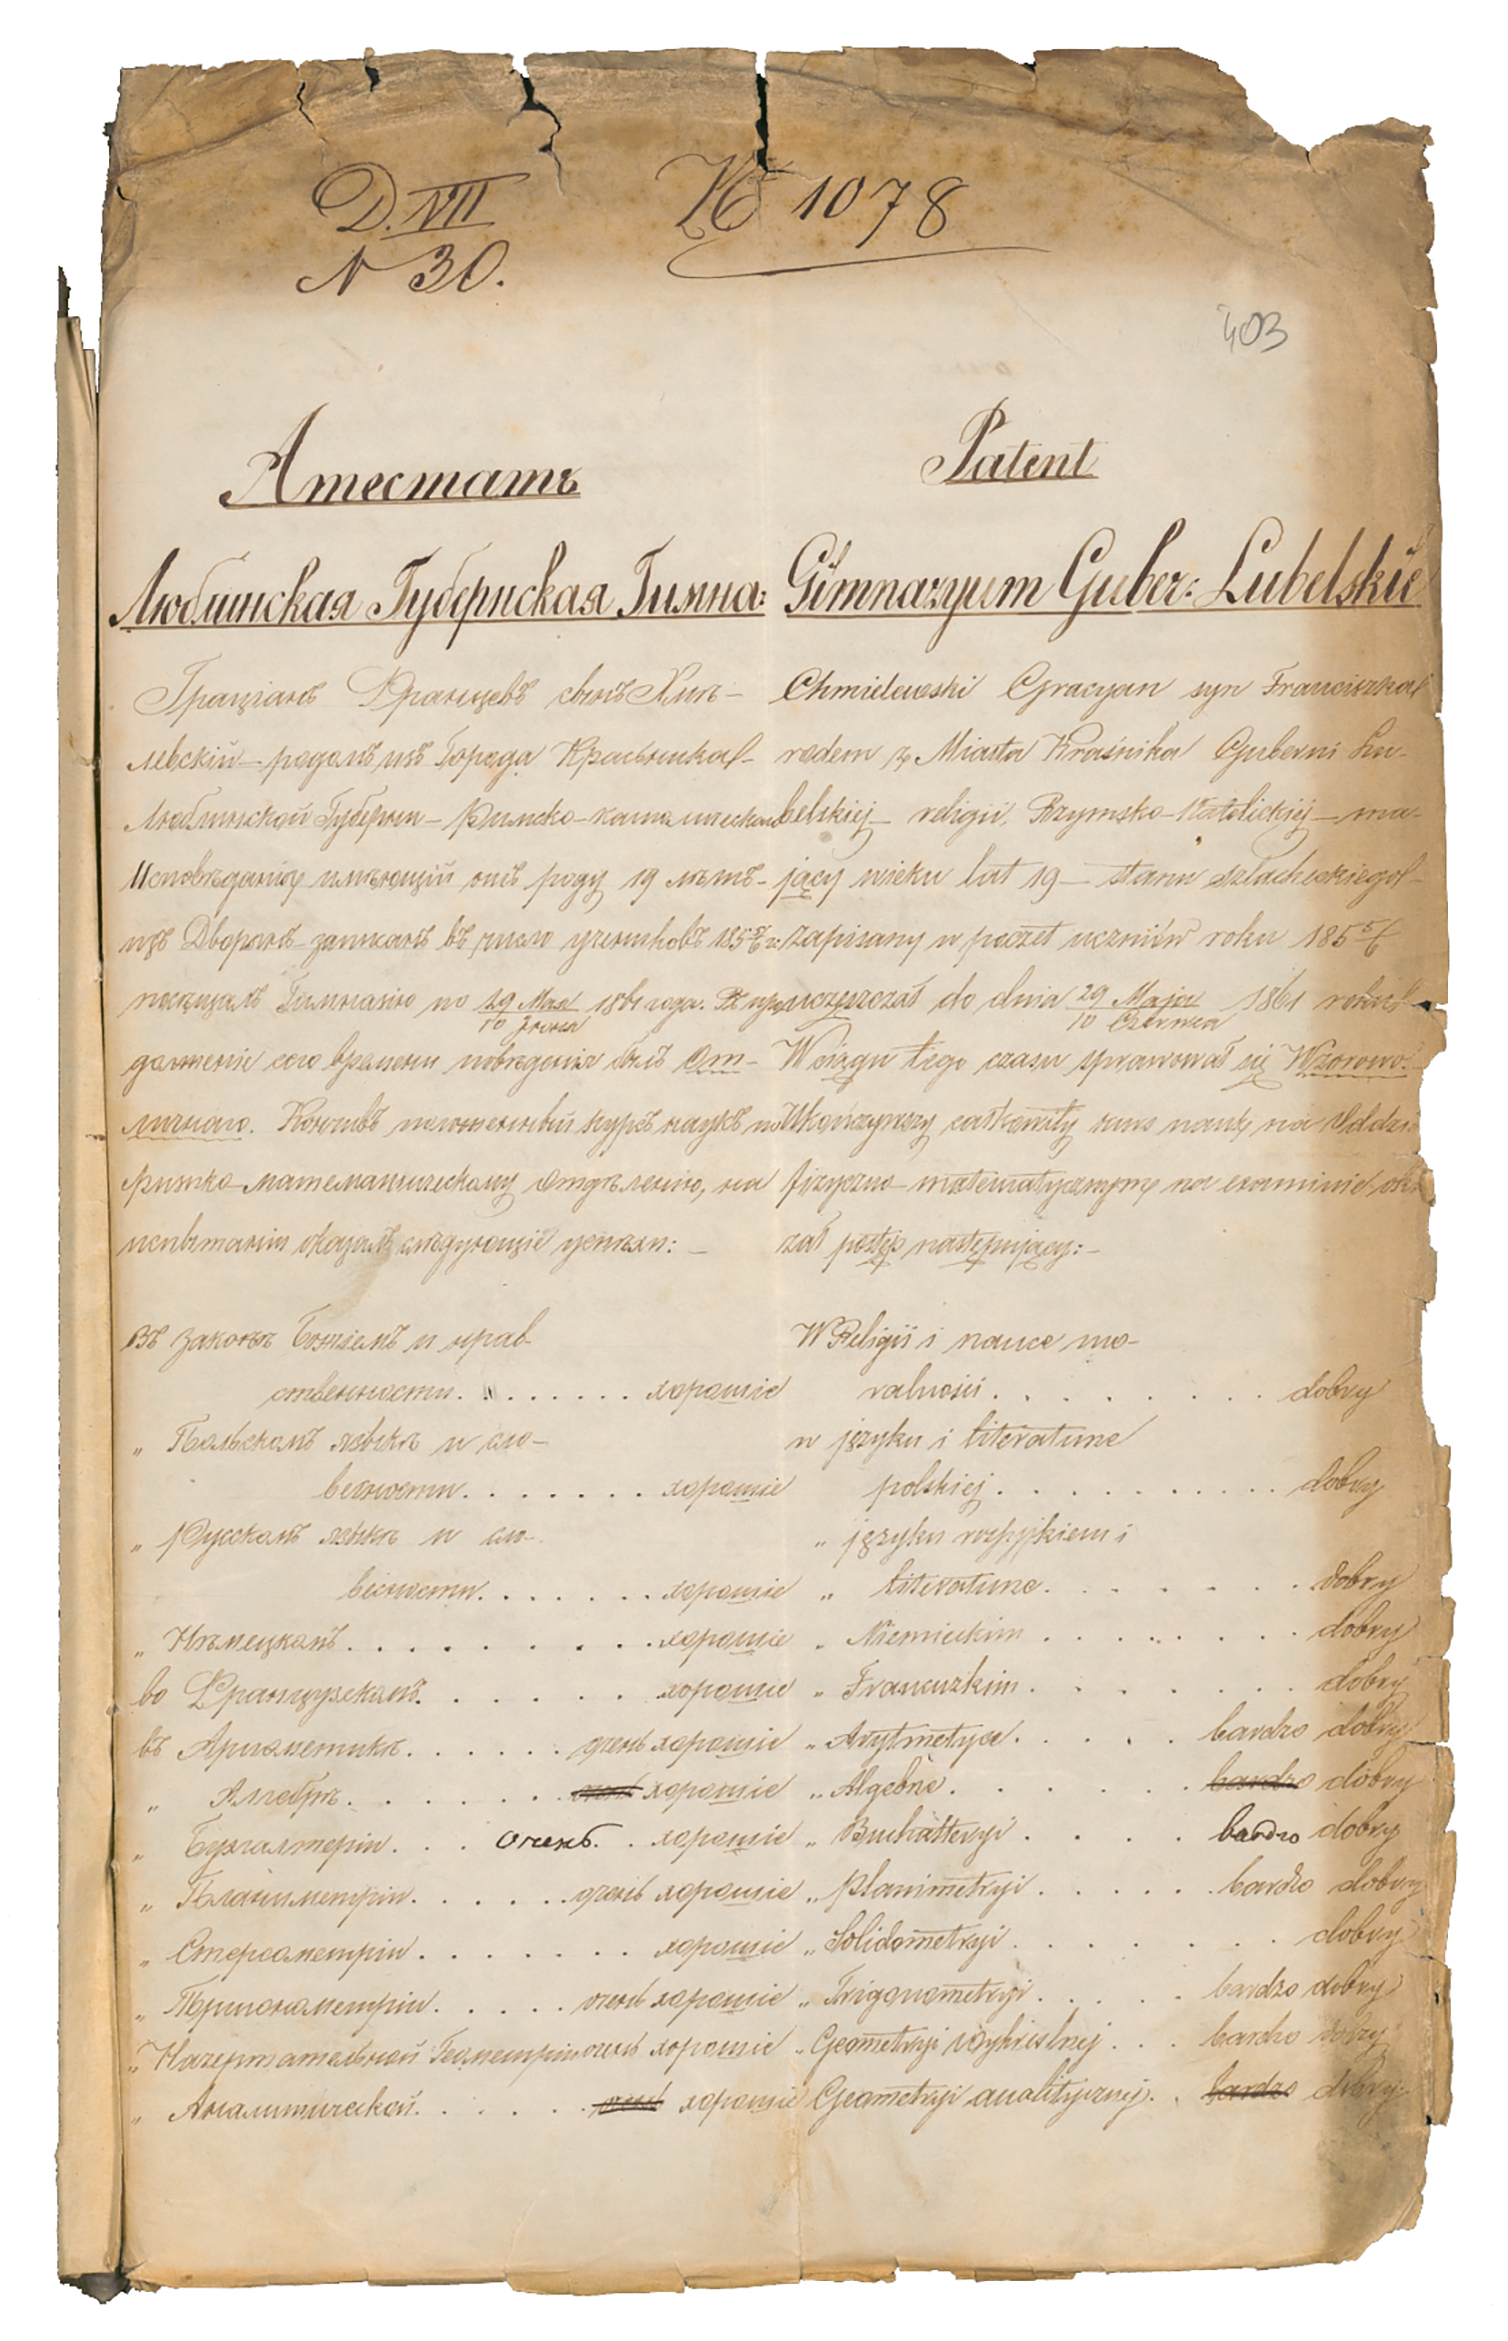 D. VII
N 30.
№ 1078
403
Атестатъ
Любинская Губернская Гимна:
Граціанъ Францевъ сынъ Хми-
левскій — родомъ изъ Города Красника —
Любинской Губерніи — Римско-католическаго
Исповѣданія имѣющій отъ роду 19 лѣтъ —
изъ Дворянъ — записанъ въ число учениковъ 185 5/6 г:
посѣщалъ Гимназію по 29 Мая / 10 Іюня 1861 года. Въ про-
долженіе сего времени поведенія былъ От-
личнаго. Кончивъ положенный курсъ наукъ по
физико-математическому отдѣленію, на
испытаніи оказалъ слѣдующіе успѣхи: —
Въ Законѣ Божіемъ и нрав-
ственности. . . . . . . . хорошіе
„ Польскомъ языкѣ и сло-
весности. . . . . . . хорошіе
„ Русскомъ языкѣ и сло-
весности. . . . . . хорошіе
„ Нѣмецкомъ. . . . . . . . . хорошіе
во Французскомъ. . . . . . хорошіе
въ Ариѳметикѣ. . . . . . очень хорошіе
„ Алгебрѣ. . . . . . . очень хорошіе
„ Бухгалтеріи. . . очень. . хорошіе
„ Планиметріи. . . . . . очень хорошіе
„ Стереометріи. . . . . . . хорошіе
„ Тригонометріи. . . . . очень хорошіе
„ Начертательной Геометріи очень хорошіе
„ Аналитической. . . . . . очень хорошіе
Patent
Gimnazyum Guber: Lubelskie
Chmielewski Gracyan syn Franciszka
rodem z Miasta Kraśnika Guberni Lu-
belskiej — religii Rzymsko-Katolickiej — ma-
jący wieku lat 19 — stanu szlacheckiego —
zapisany w poczet uczniów roku 185 5/6
uczęszczał do dnia 29 Maja / 10 Czerwca 1861 roku
W ciągu tego czasu sprawował się Wzorowo.
Ukończywszy całkowity kurs nauk na Oddzia
fizyczno-matematycznym na examinie oka
zał postęp następujący: —
W Religii i nauce mo-
ralności. . . . . . . . . dobry
w języku i literaturze
polskiej. . . . . . . . . . dobry
„ języku rossyjskiem i
„ literaturze. . . . . . . dobry
„ Niemieckim . . . . . . . dobry
„ Francuzkim. . . . . . . dobry
„ Arytmetyce. . . . . bardzo dobry
„ Algebrie. . . . . . . bardzo dobry
„ Buchalteryi . . . . bardzo dobry
„ Planimetryi . . . . . bardzo dobry
„ Solidometryi. . . . . . . . dobry
„ Trigonometryi. . . . . bardzo dobry
„ Geometryi Wykreslnej. . . bardzo dobry
Geometryi analitycznej. . bardzo dobry